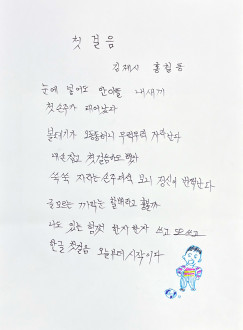 첫 걸음
김제시 홍길동
눈에 넣어도 안아플 내새끼
첫 손주가 태어났다
볼때기가 오동통하니 무럭무럭 자란다
내 손 잡고 첫걸음마도 뗐다
쑥쑥 자라는 손주녀석 보니 정신이 번쩍난다
글 모르는 까막눈 할매라고 놀릴까
나도 있는 힘껏 한자 한자 쓰고 또 쓰고
한글 첫걸음 오늘부터 시작이다